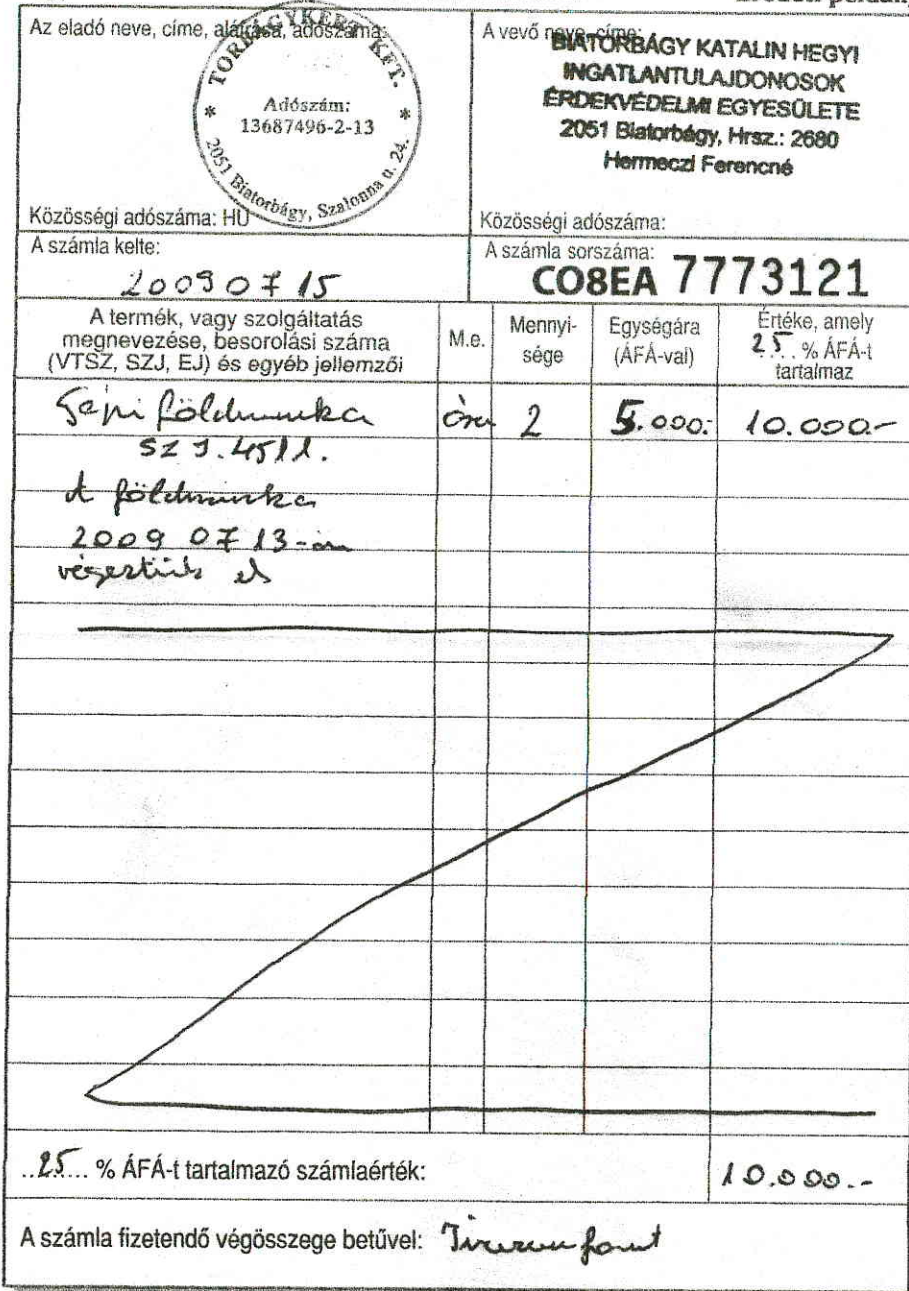 Az eladó neve, címe, aláírása, adószáma:
TORBÁGYKERT KFT.
Adószám:
13687496-2-13
2051 Biatorbágy, Szalonna u. 24.
Közösségi adószáma: HU
A vevő neve, címe:
BIATORBÁGY KATALIN HEGYI
INGATLANTULAJDONOSOK
ÉRDEKVÉDELMI EGYESÜLETE
2051 Biatorbágy, Hrsz.: 2680
Hermeczi Ferencné
Közösségi adószáma:
A számla kelte:
2009 07 15
A számla sorszáma:
CO8EA 7773121
A termék, vagy szolgáltatás
megnevezése, besorolási száma
(VTSZ, SZJ, EJ) és egyéb jellemzői
M.e.
Mennyi-
sége
Egységára
(ÁFÁ-val)
Értéke, amely
25 % ÁFÁ-t
tartalmaz
Gépi földmunka óra 2 5.000.- 10.000.-
SZJ. 4511.
A földmunka
2009 07 13-án
végeztük el
25 % ÁFÁ-t tartalmazó számlaérték: 10.000.-
A számla fizetendő végösszege betűvel: Tízezer forint